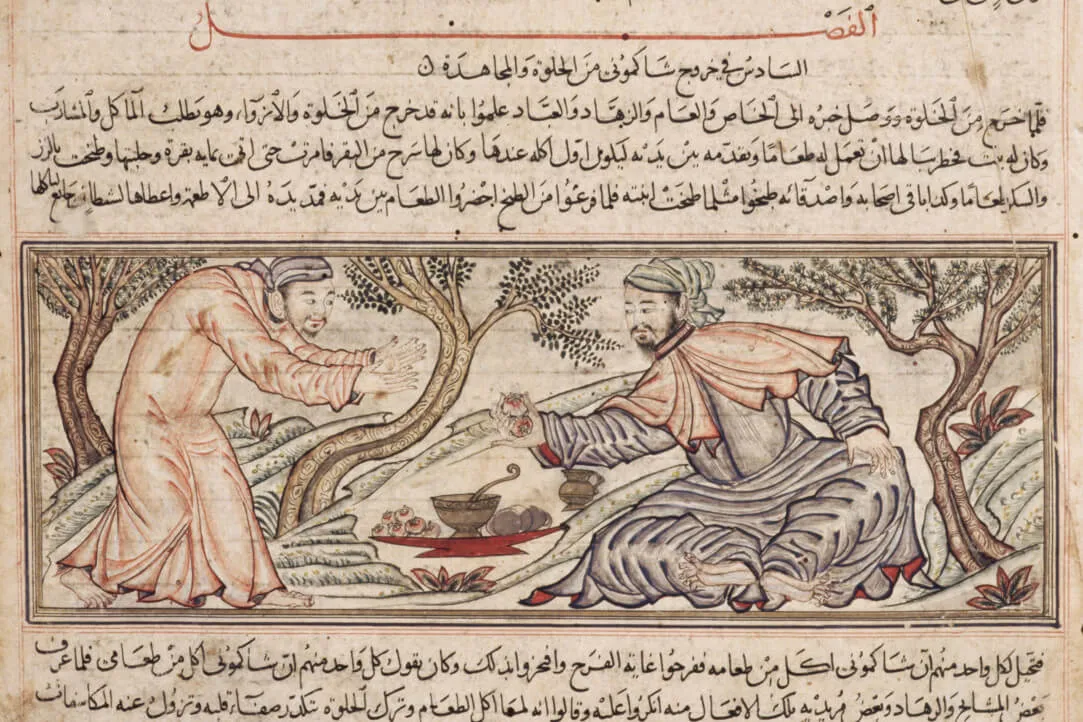 الفصل
السادس في خروج شاكموني من الخلوة والمجاهدة
فلما خرج من الخلوة ووصل خبره الى الخاص والعام والزهاد والعباد علموا بانه قد خرج من الخلوة والانزواء وهو يطلب المآكل والمشارب
وكان له بنت فخطر ببالها ان تعمل له طعاما وتقدمه بين يديه ليكون اول اكله عندها وكان لها سرح من البقر فامرت حتى اتت بمايه بقرة وحلبتها وطبخت بالرز
والسكر طعاما وكذا باقي اصحابه واصدقائه طبخوا مثلما طبخت ابنته فلما فرغوا من الطبخ احضروا الطعام بين يديه فمد يده الى الاطعمة واعطاها لشطان جائع لياكلها
فتخيل لكل واحد منهم ان شاكموني اكل من طعامه ففرحوا غاية الفرح وافتخروا بذلك وكان يقول كل واحد منهم ان شاكموني اكل من طعامي فلما عرف
بعض المشايخ والزهاد وبعض مريديه تلك الافعال منه انكروا عليه وقالوا انه لما اكل الطعام وترك الخلوة تكدر صفاء قلبه وتزول عنه المكاشفات